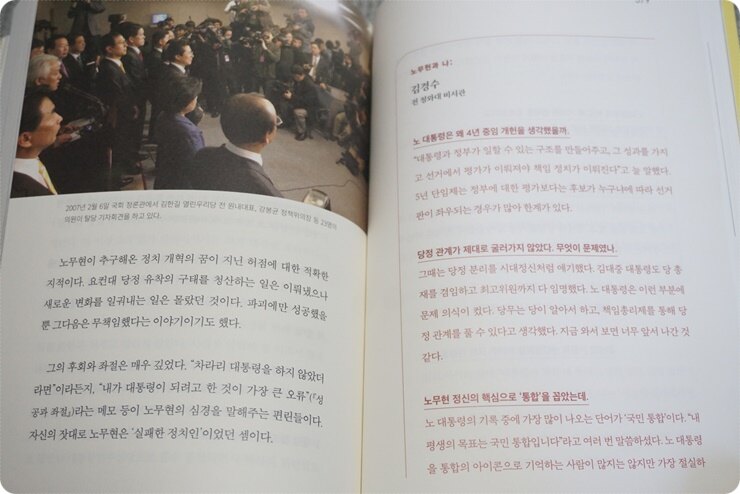 2007년 2월 6일 국회 정론관에서 김한길 열린우리당 전 원내대표, 강봉균 정책위의장 등 23명의
의원이 탈당 기자회견을 하고 있다.
노무현이 추구해온 정치 개혁의 꿈이 지닌 허점에 대한 적확한
지적이다. 요컨대 당정 유착의 구태를 청산하는 일은 이뤄냈으나
새로운 변화를 일궈내는 일은 몰랐던 것이다. 파괴에만 성공했을
뿐 그다음은 무책임했다는 이야기이기도 했다.
그의 후회와 좌절은 매우 깊었다. “차라리 대통령을 하지 않았더
라면”이라든지, “내가 대통령이 되려고 한 것이 가장 큰 오류”(『성
공과 좌절』)라는 메모 등이 노무현의 심경을 말해주는 편린들이다.
자신의 잣대로 노무현은 ‘실패한 정치인’이었던 셈이다.
노무현과 나:
김경수
전 청와대 비서관
노 대통령은 왜 4년 중임 개헌을 생각했을까.
“대통령과 정부가 일할 수 있는 구조를 만들어주고, 그 성과를 가지
고 선거에서 평가가 이뤄져야 책임 정치가 이뤄진다”고 늘 말했다.
5년 단임제는 정부에 대한 평가보다는 후보가 누구냐에 따라 선거
판이 좌우되는 경우가 많아 한계가 있다.
당정 관계가 제대로 굴러가지 않았다. 무엇이 문제였나.
그때는 당정 분리를 시대정신처럼 얘기했다. 김대중 대통령도 당 총
재를 겸임하고 최고위원까지 다 임명했다. 노 대통령은 이런 부분에
문제 의식이 컸다. 당무는 당이 알아서 하고, 책임총리제를 통해 당
정 관계를 풀 수 있다고 생각했다. 지금 와서 보면 너무 앞서 나간 것
같다.
노무현 정신의 핵심으로 ‘통합’을 꼽았는데.
노 대통령의 기록 중에 가장 많이 나오는 단어가 ‘국민 통합’이다. “내
평생의 목표는 국민 통합입니다”라고 여러 번 말씀하셨다. 노 대통령
을 통합의 아이콘으로 기억하는 사람이 많지는 않지만 가장 절실하